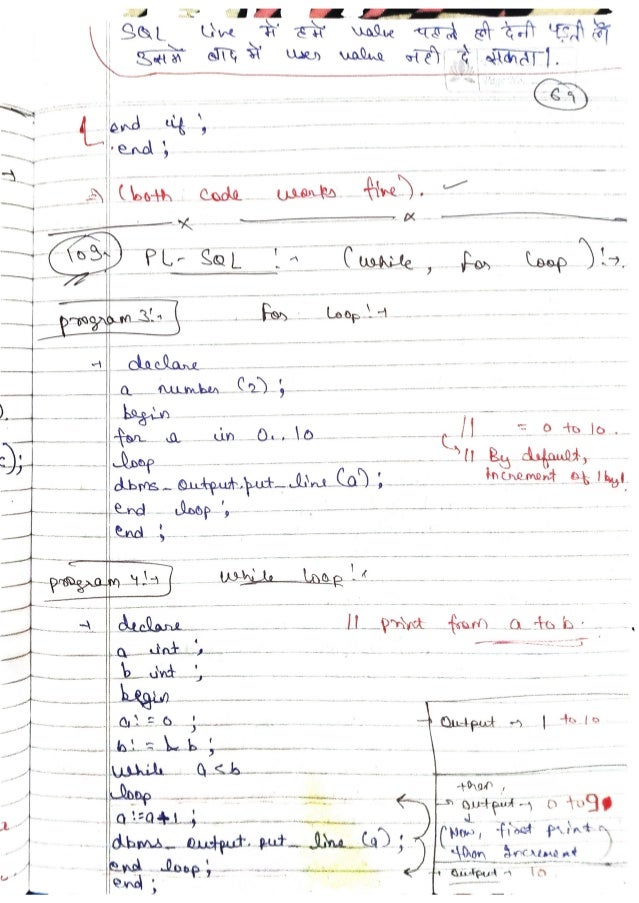 SQL Live में हमे value पहले ही देनी पड़ती है
इसमें बाद में user value नही दे सकता।
69
end if ;
end ;
⇒ (both code works fine). ✓
109. PL-SQL :→ (while, for loop) :→
program 3:→ for loop :→
→ declare
a number (2) ;
begin
for a in 0..10 // = 0 to 10.
loop // By default,
increment of 1 by 1
dbms_output.put_line (a) ;
end loop ;
end ;
program 4:→ while loop :→
→ declare // print from a to b.
a int ;
b int ;
begin
a:=0 ;
→ Output → 1 to 10
b:= &b ;
while a<b
loop
then,
→ output → 0 to 9
a:=a+1 ;
(Now, first print
dbms_output.put_line (a) ;
then increment
end loop ;
→ output → 10
end ;